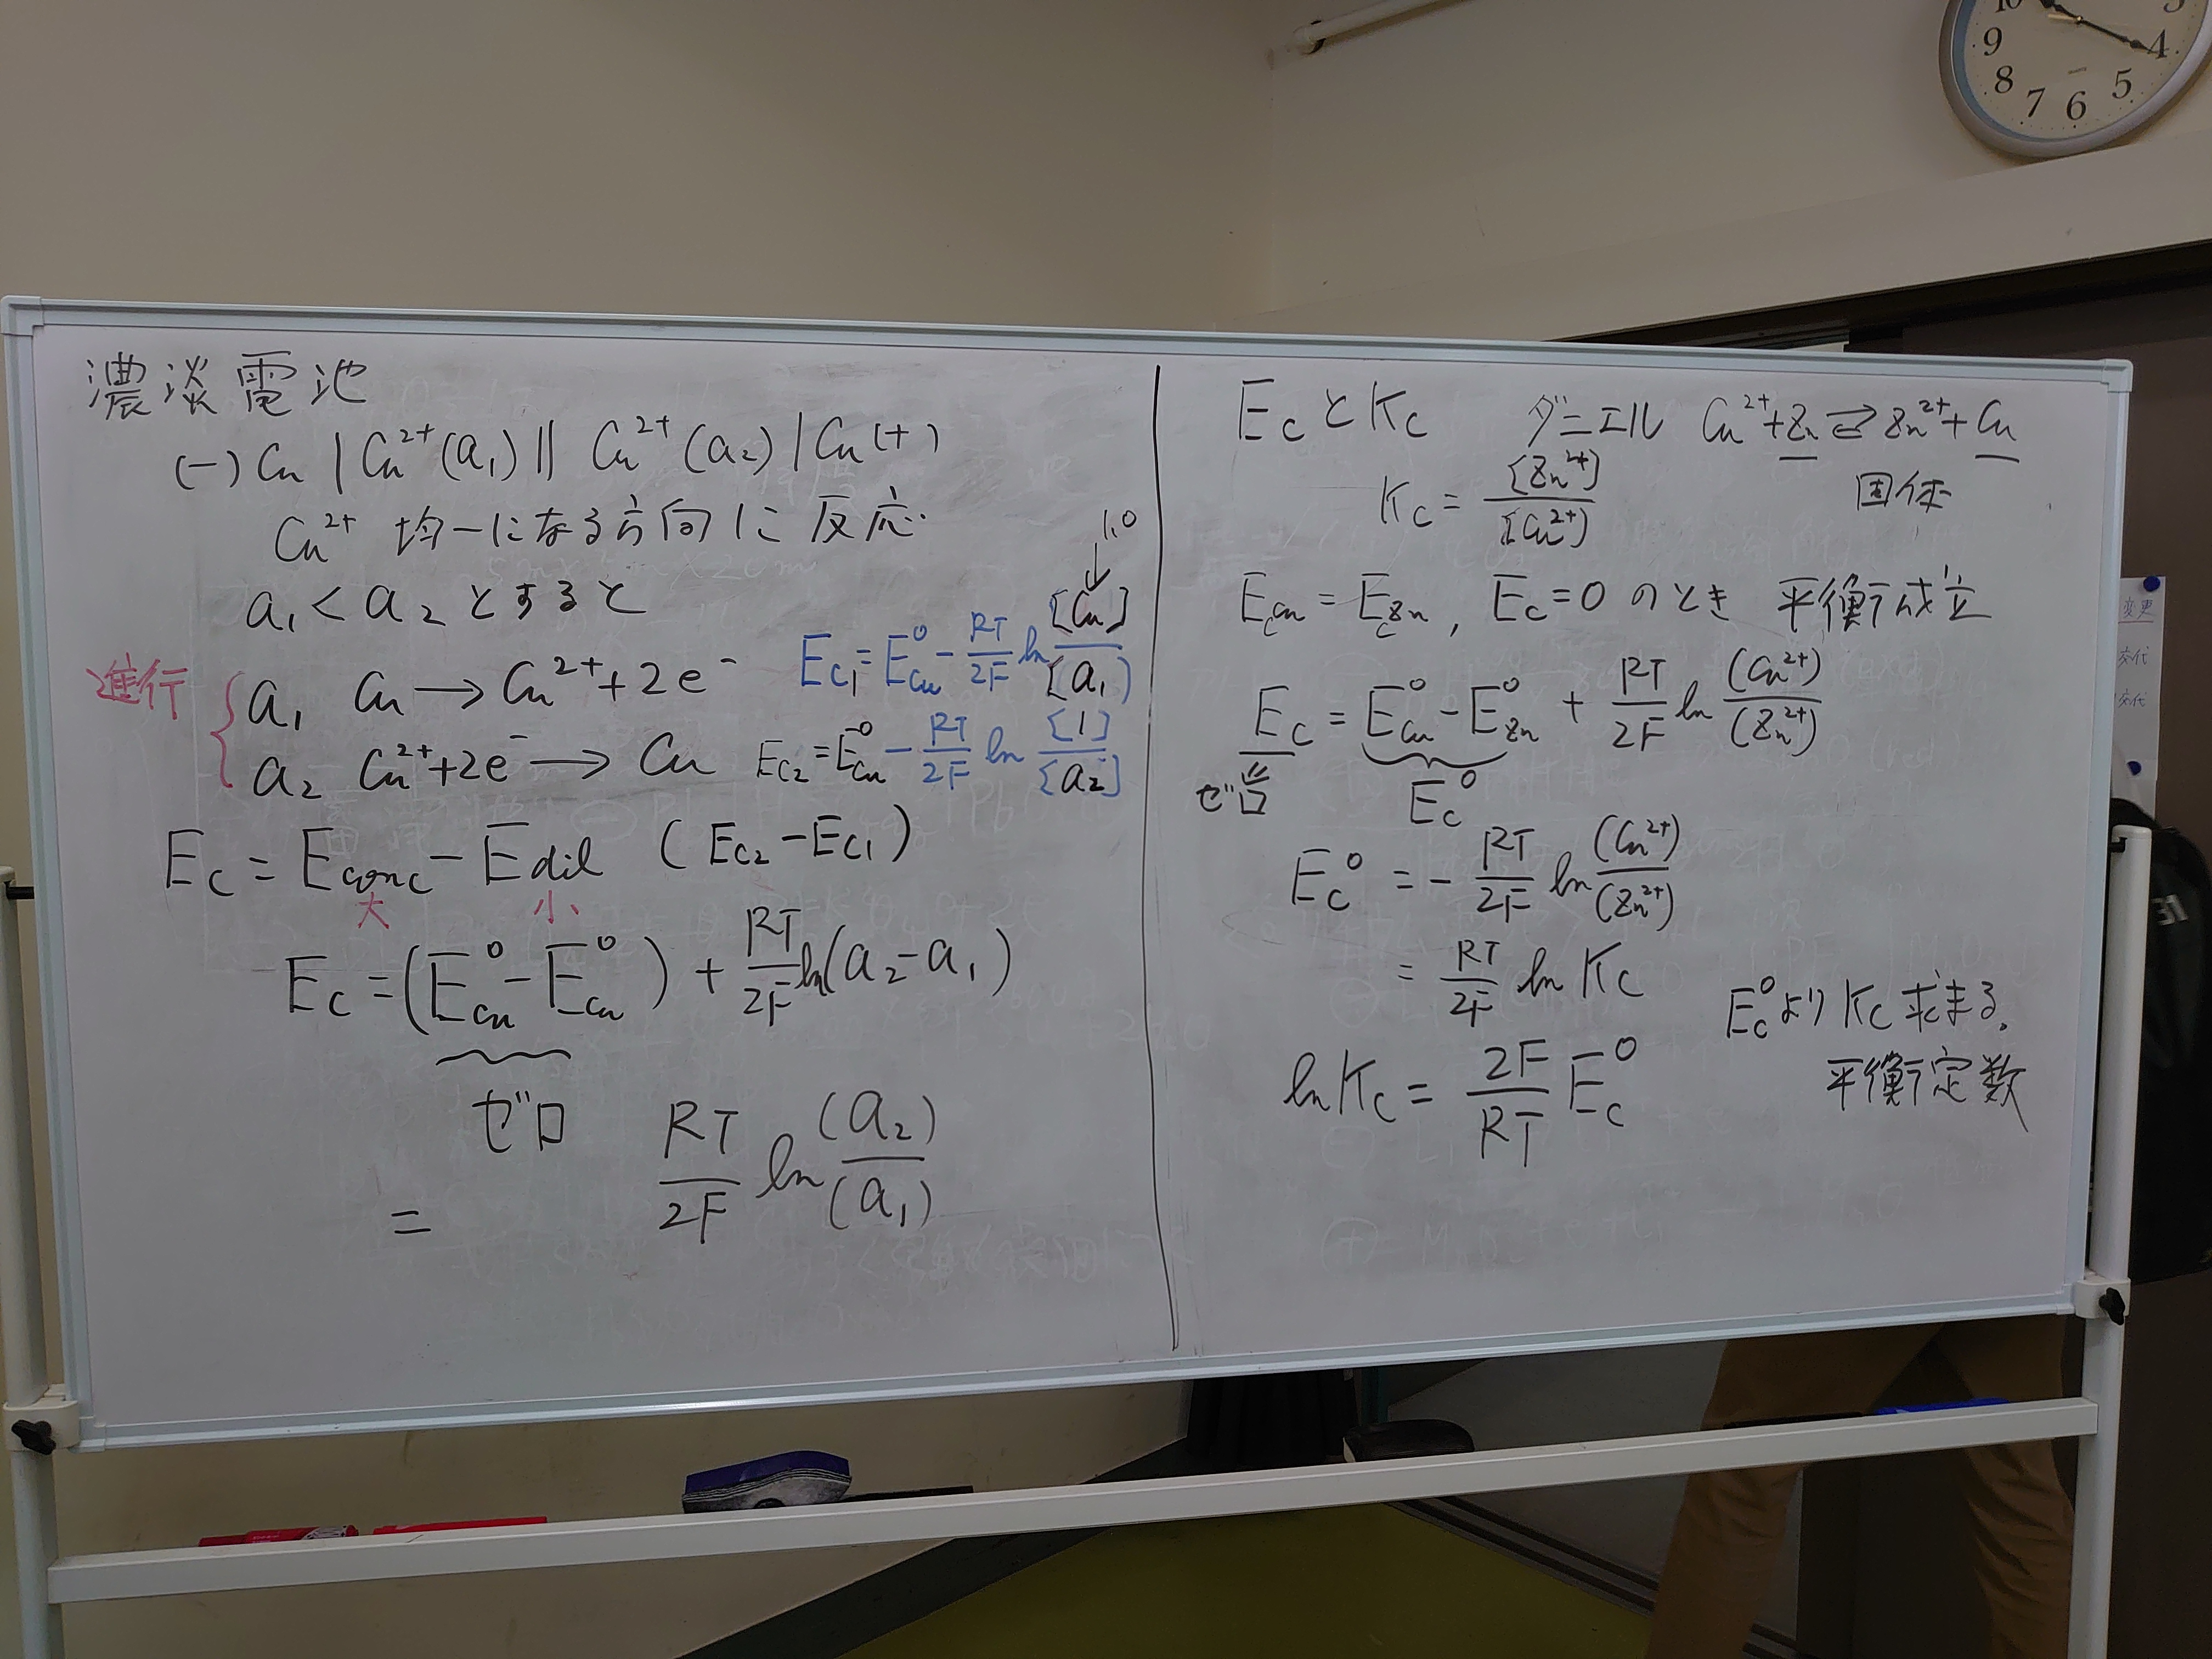 濃淡電池
(−) Cu | Cu²⁺(a₁) || Cu²⁺(a₂) | Cu(+)
Cu²⁺ 均一になる方向に反応.
a₁ < a₂ とすると
進行
a₁ Cu → Cu²⁺+2e⁻ Ec₁=E⁰Cu − RT/2F ln [Cu]/[a₁)
1.0
a₂ Cu²⁺+2e⁻ → Cu Ec₂=E⁰Cu − RT/2F ln [1]/[a₂]
Ec = Econc − Edil (Ec₂−Ec₁)
大 小
Ec = (E⁰Cu − E⁰Cu) + RT/2F ln(a₂−a₁)
ゼロ
= RT/2F ln (a₂)/(a₁)
EcとKc ダニエル Cu²⁺+Zn ⇌ Zn²⁺+Cu
固体
Kc = [Zn²⁺)/[Cu²⁺)
EcCu = EcZn, Ec=0 のとき 平衡成立
Ec = E⁰Cu − E⁰Zn + RT/2F ln (Cu²⁺)/(Zn²⁺)
Ec⁰
Ec⁰ = − RT/2F ln (Cu²⁺)/(Zn²⁺)
= RT/2F ln Kc
Ec⁰よりKc求まる.
平衡定数
ln Kc = 2F/RT Ec⁰
変更
交代
交代
10 9 8 7 6 5 4 3